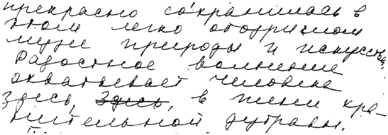 прекрасно сохранилась в
этом легко обозримом
музее природы и искусства.
Радостное волнение
охватывает человека
здесь, здесь, в тени кра-
нительной дубравы.